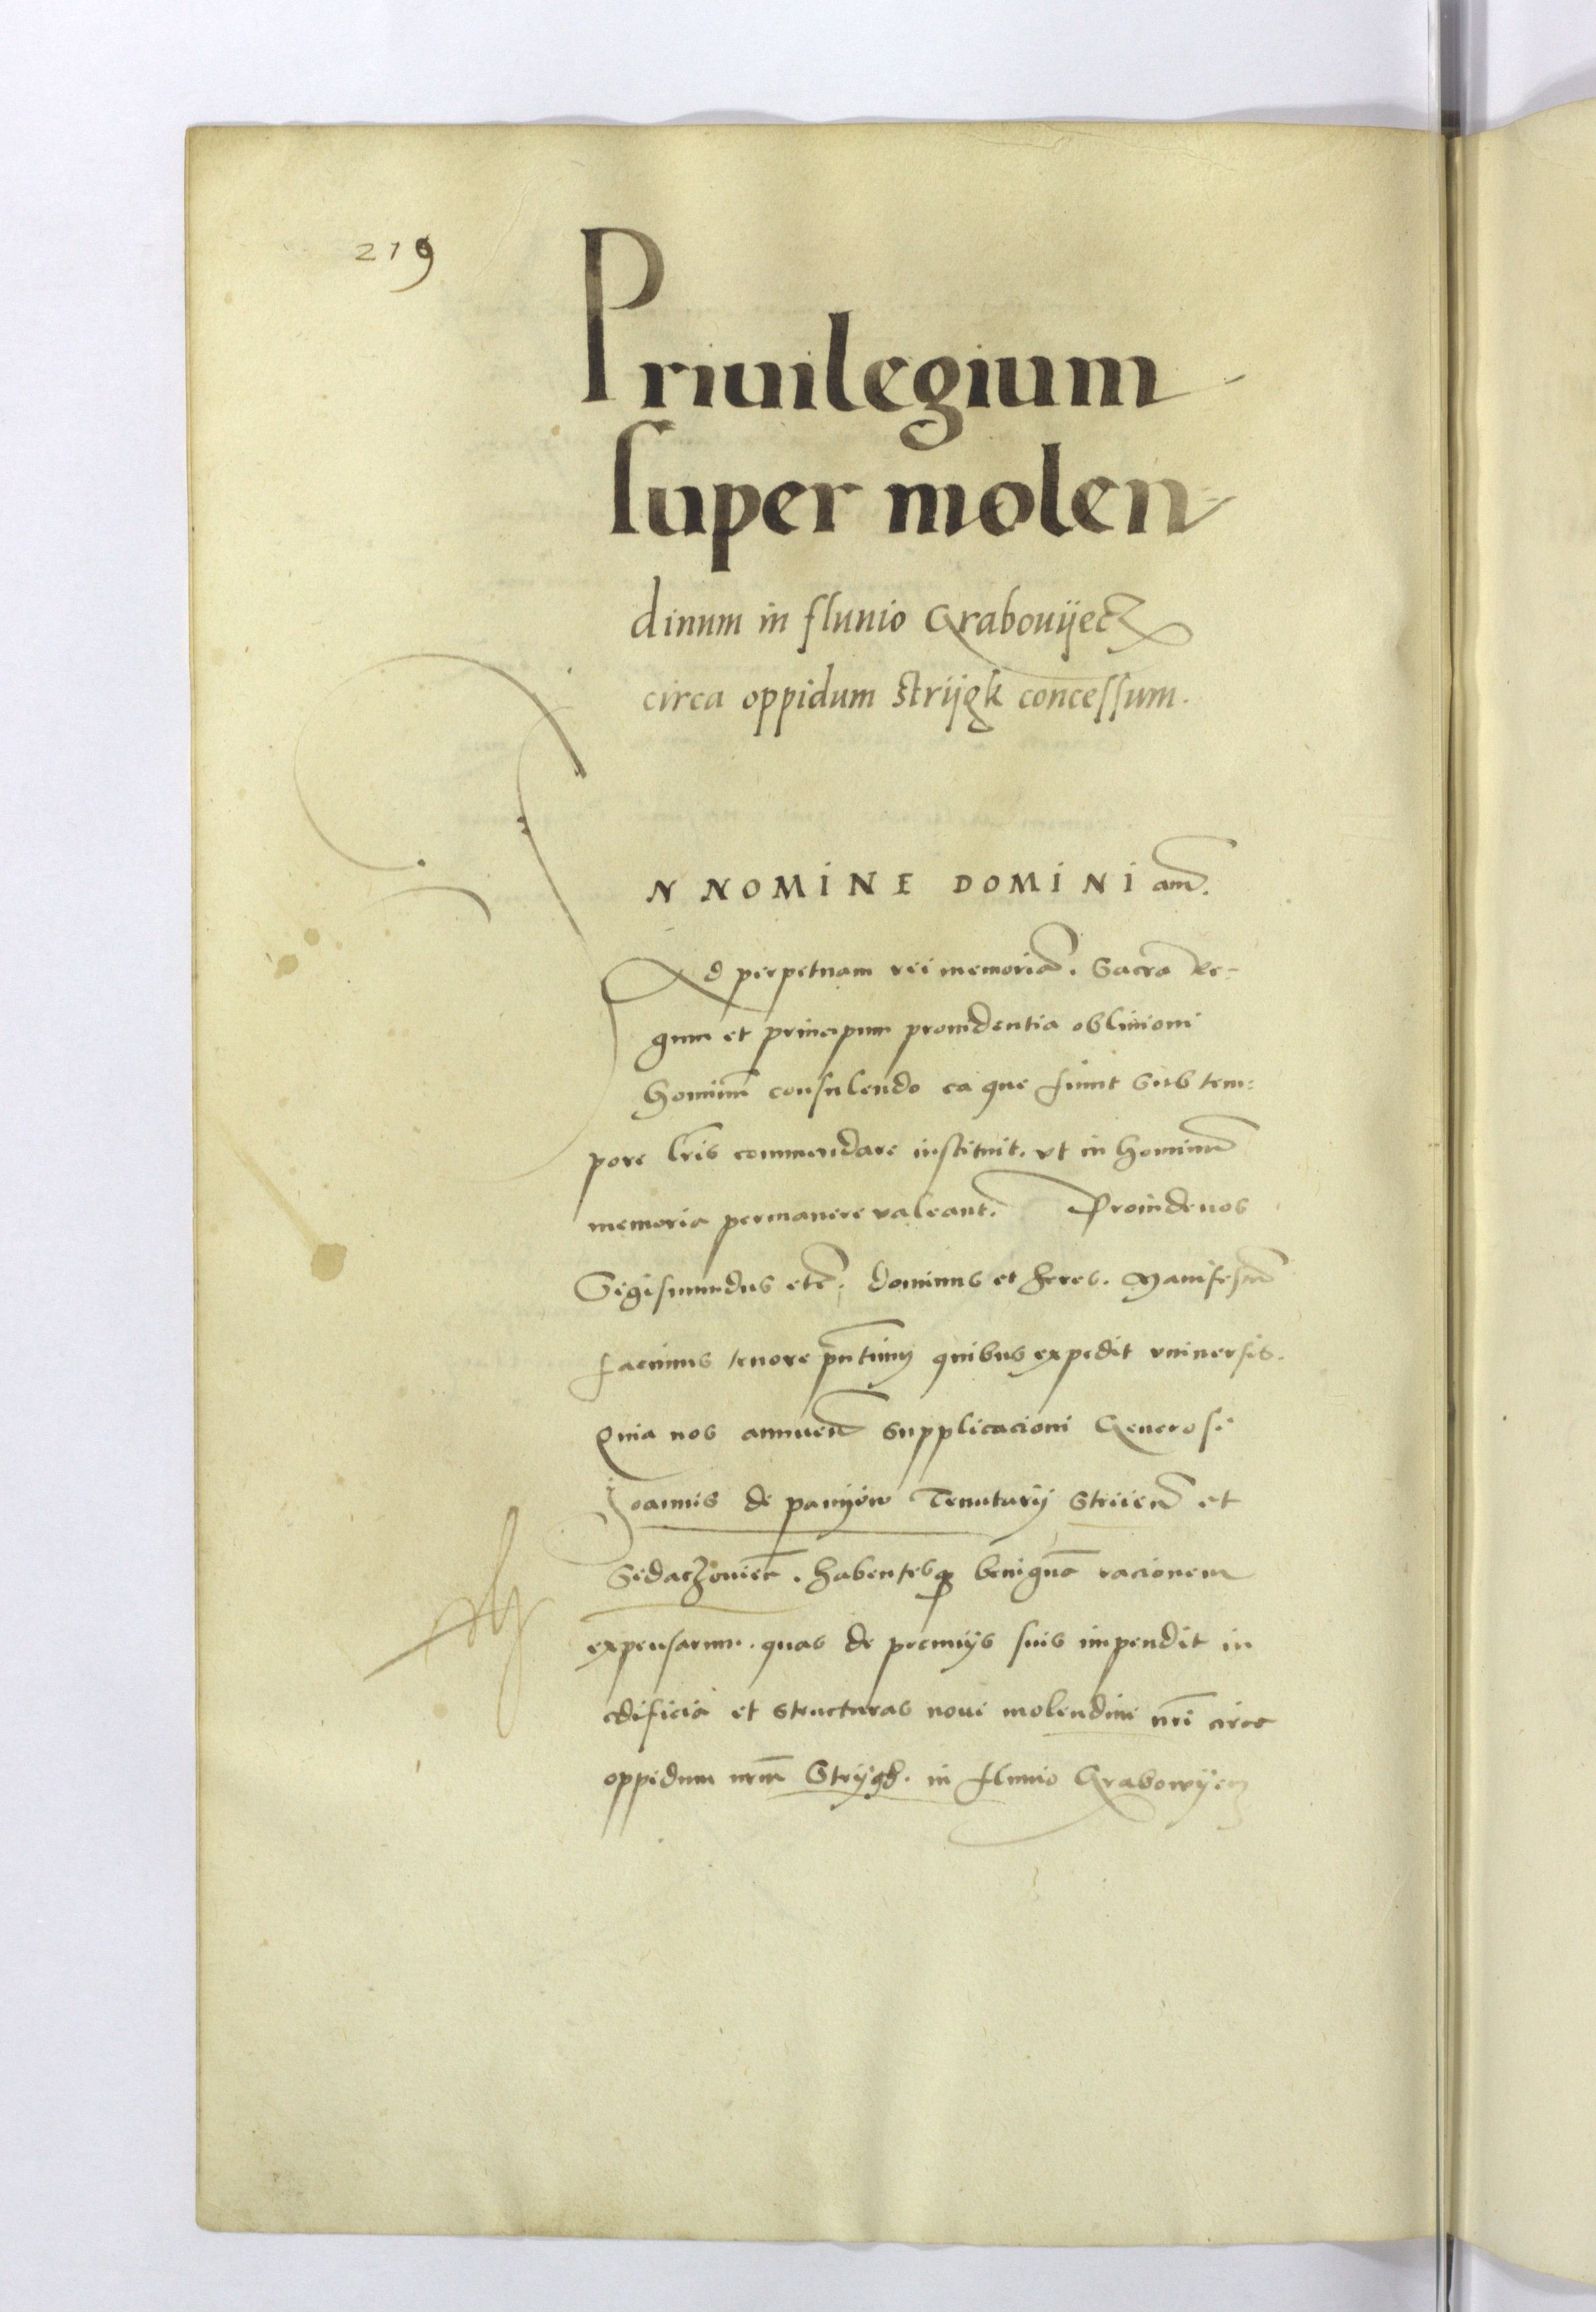 219
Priuilegium
super molen-
dinum in fluuio Grabouijecz
circa oppidum Strijgk concessum.
N NOMINE DOMINI am̄.
Ad perpetuam rei memoriā. Sacra Re-
gum et principum prouidentia obliuioni
hominū consulendo ea que fiunt sub tem-
pore l̄ris commendare instituit. vt in hominū
memoria permanere valeant. Proinde nos
Sigismundus etc̄. dominus et heres. Manifestū
facimus tenore pn̄tium quibus expedit vniuersis.
Quia nos annuen̄ supplicacioni Generosi
Joannis de panyow Tenutarij Striien̄ et
Sidaczouien̄. habentesq benignā racionem
expensarum. quas de premijs suis impendit in
edificia et structuras noui molendini nr̄i circa
oppidum nrm̄ Strijgk. in fluuio Grabowijecz